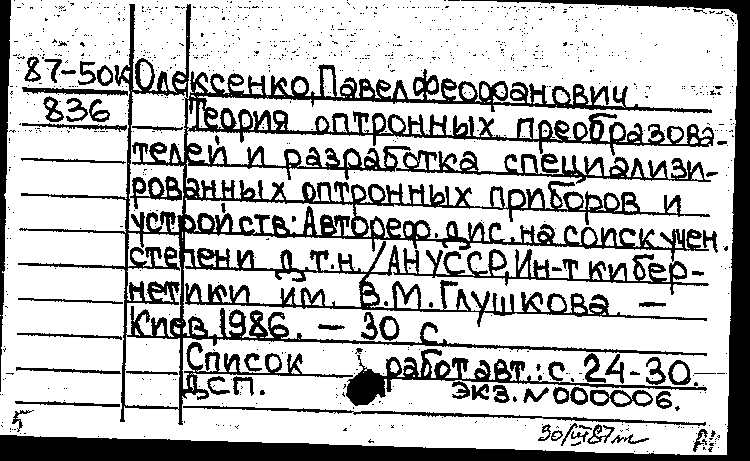 87-50к Олексенко, Павел Феофанович.
836 Теория оптронных преобразова-
телей и разработка специализи-
рованных оптронных приборов и
устройств: Автореф. дис. на соиск учен.
степени д.т.н. /АН УССР, Ин-т кибер-
нетики им. В.М. Глушкова. —
Киев, 1986. — 30 с.
Список работ авт.: с. 24-30.
ДСП. экз. N 000006.
5